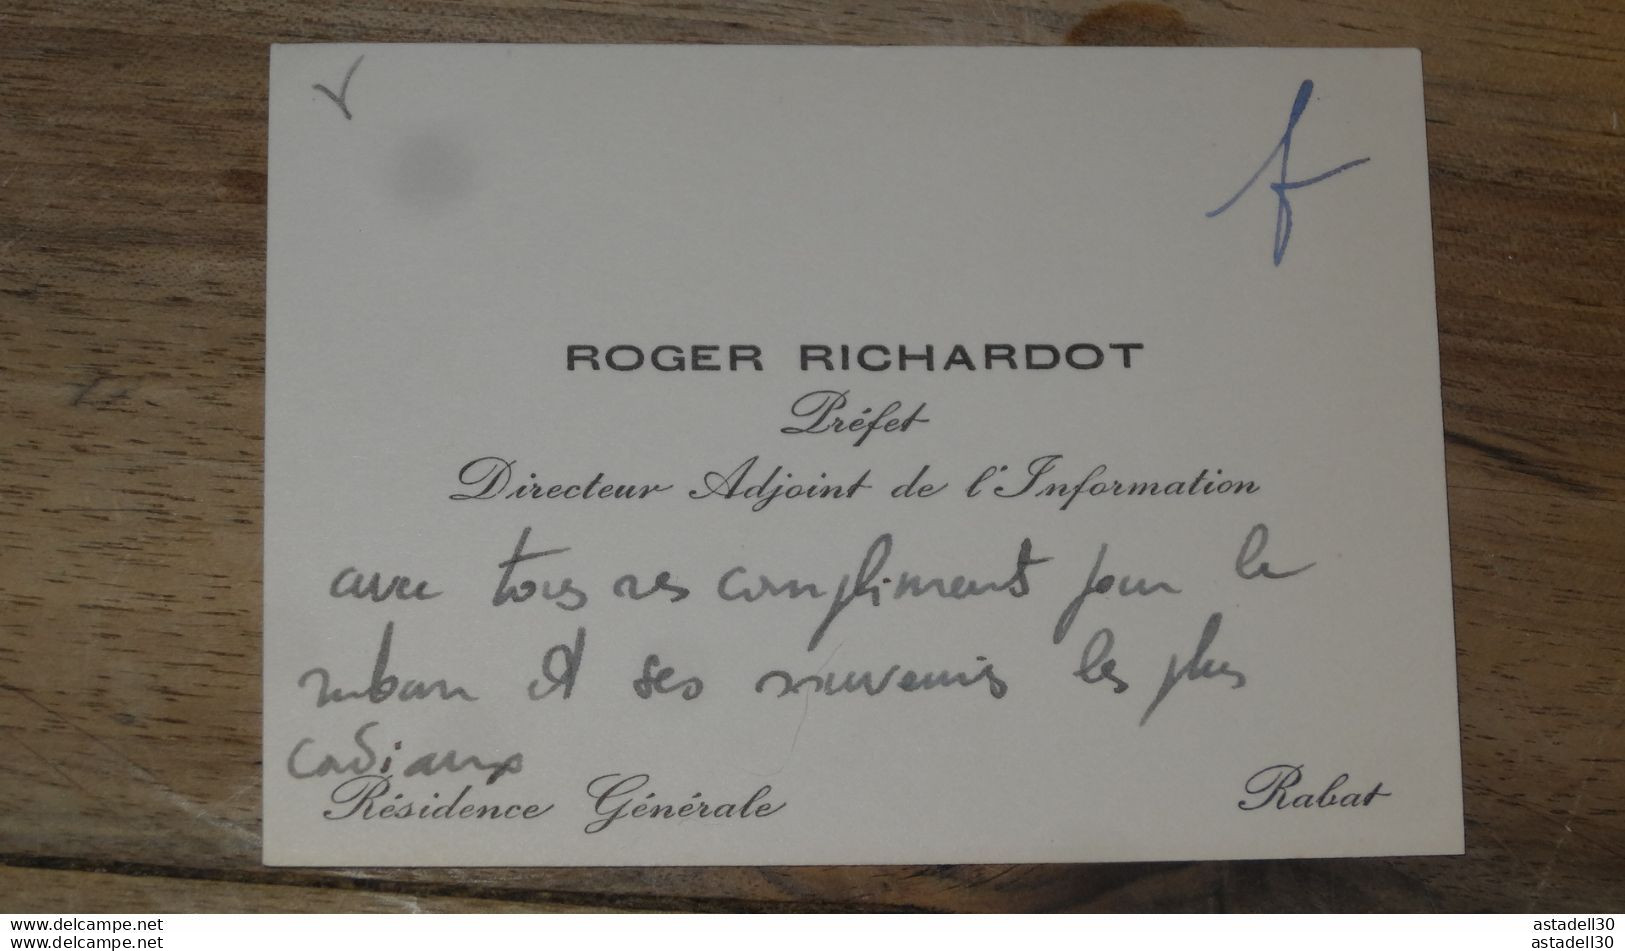 f
ROGER RICHARDOT
Préfet
Directeur Adjoint de l'Information
avec tous ses compliments pour le
ruban et ses souvenirs les plus
cordiaux
Résidence Générale Rabat
www.delcampe.net
www.delcampe.net
astadell30
astadell30